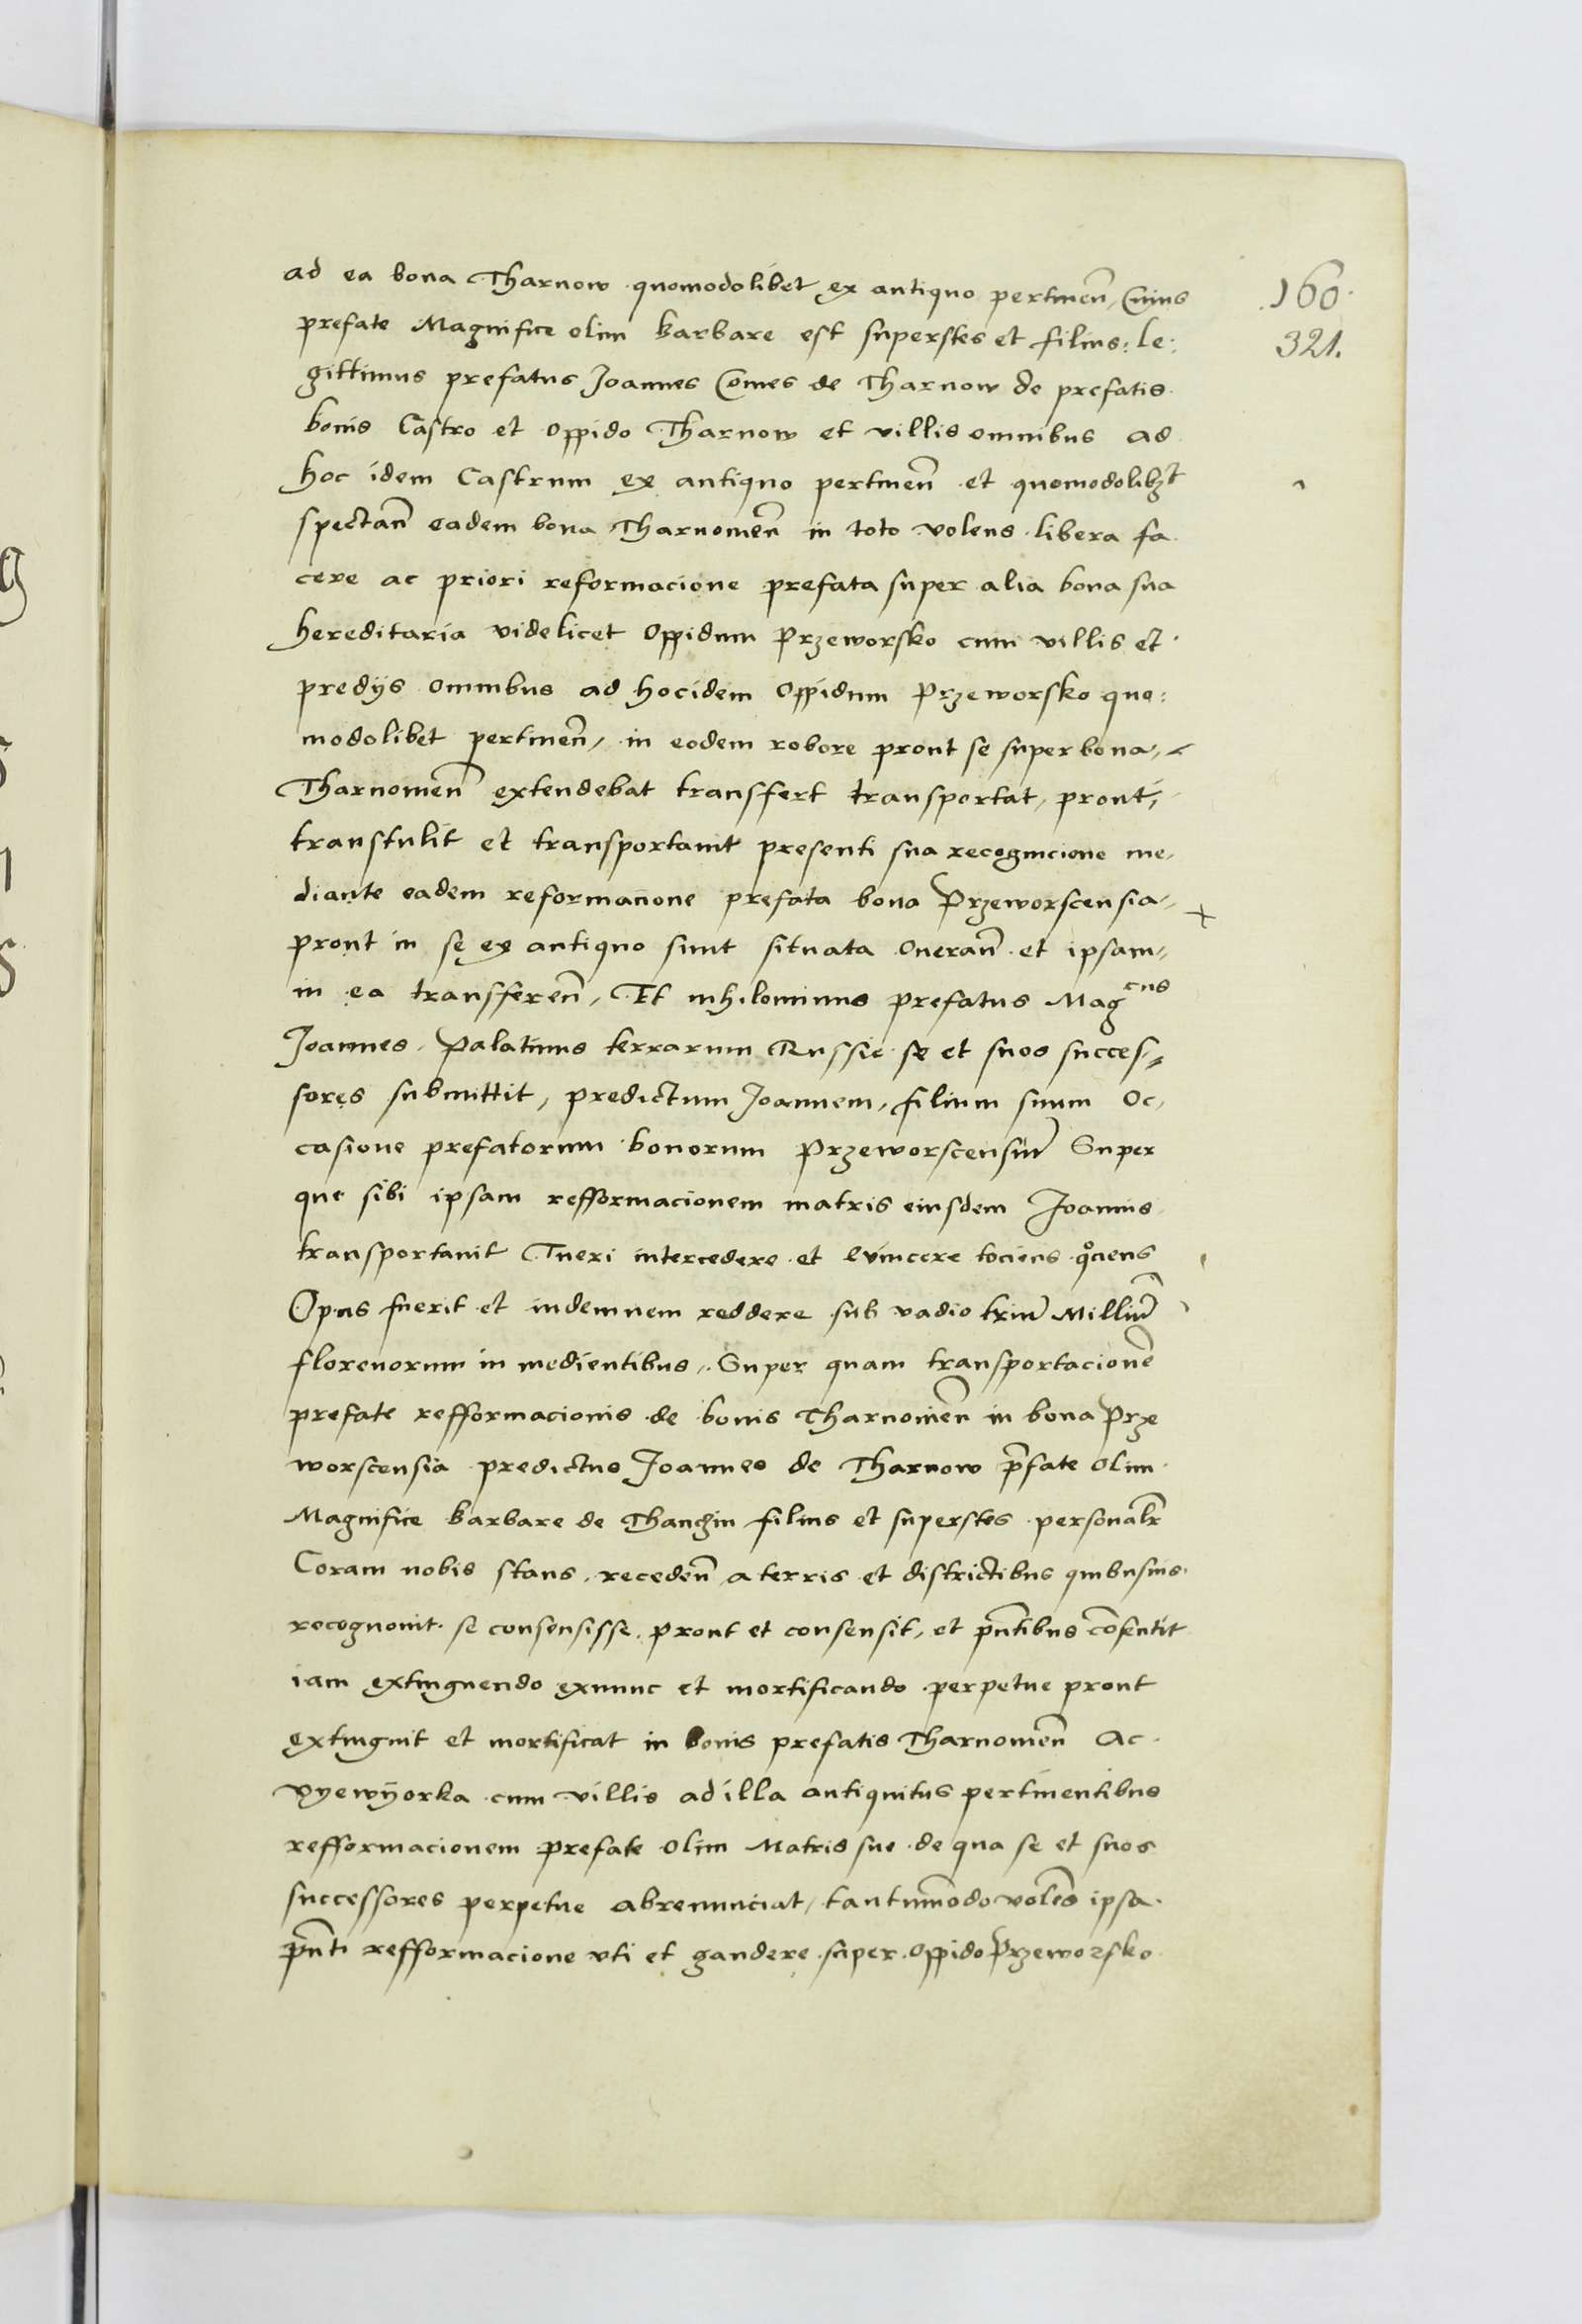 ad ea bona Tharnow quomodolibet ex antiquo pertinen̄, Cuius
160.
prefate Magnifice olim barbare est superstes et filius: le:
321.
gittimus prefatus Joannes Comes de Tharnow de prefatis
bonis Castro et oppido Tharnow et villis omnibus ad
hoc idem Castrum ex antiquo pertinen̄ et quomodolibꝫt
spectan̄ eadem bona Tharnowien̄ in toto volens libera fa
cere ac priori reformacione prefata super alia bona sua
hereditaria videlicet Oppidum Przeworsko cum villis et
predijs omnibus ad hocidem Oppidum Przeworsko quo:
modolibet pertinen̄, in eodem robore prout se super bona,
Tharnowien̄ extendebat transfert transportat, prout,
transtulit et transportauit presenti sua recognicione me,
diante eadem reformacione prefata bona Przeworscensia,
prout in se ex antiquo sunt situata Oneran̄ et ipsam,
in ea transferen̄, Et nihilominus prefatus Magcus
Joannes Palatinus terrarum Russie se et suos succes,
sores submittit, predictum Joannem, filium suum Oc,
casione prefatorum bonorum Przeworscensiū Super
que sibi ipsam refformacionem matris eiusdem Joannis
transportauit Tueri intercedere et euincere tociens qociens
Opus fuerit et indemnem reddere sub vadio triū Milliū
florenorum in medientibus, Super quam transportacionē
prefate refformacionis de bonis Tharnowien̄ in bona Prze
worscensia predictus Joannes de Tharnow p̄fate olim
Magnifice barbare de Thanchin filius et superstes personalr̄
Coram nobis stans, receden̄ a terris et districtibus quibusuis
recognouit se consensisse prout et consensit, et pn̄tibus cōsentit
iam extinguendo exnunc et mortificando perpetue prout
extinguit et mortificat in bonis prefatis Tharnowien̄ Ac
Vyewyorka cum villis ad illa antiquitus pertinentibus
refformacionem prefate olim Matris sue de qua se et suos
successores perpetue abrenunciat, tantūmodo volēs ipsa
pn̄ti refformacione vti et gaudere super oppido Przeworsko